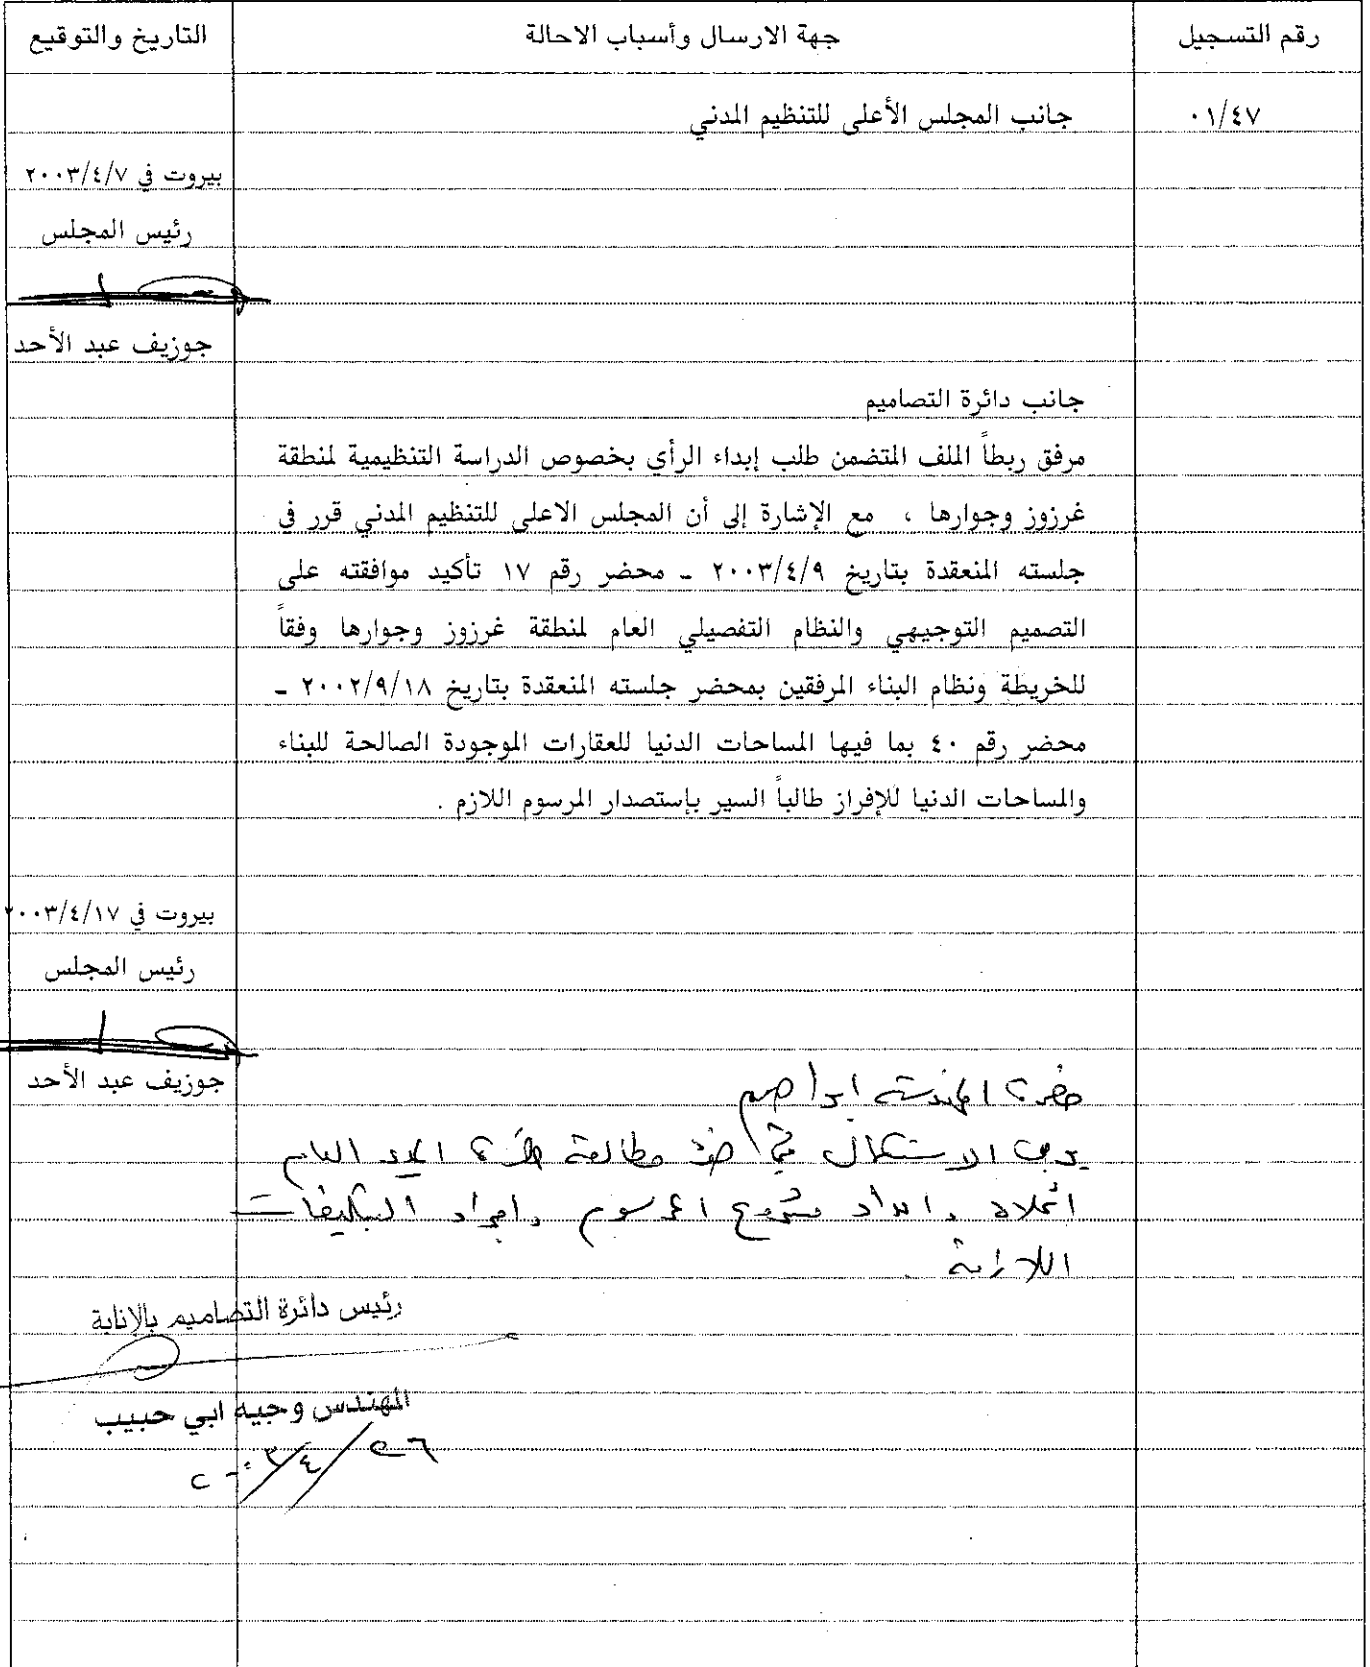 رقم التسجيل
جهة الارسال وأسباب الاحالة
التاريخ والتوقيع
٠١/٤٧
جانب المجلس الأعلى للتنظيم المدني
بيروت في ٢٠٠٣/٤/٧
رئيس المجلس
جوزيف عبد الأحد
جانب دائرة التصاميم
مرفق ربطاً الملف المتضمن طلب إبداء الرأي بخصوص الدراسة التنظيمية لمنطقة
غرزوز وجوارها ، مع الإشارة إلى أن المجلس الاعلى للتنظيم المدني قرر في
جلسته المنعقدة بتاريخ ٢٠٠٣/٤/٩ ـ محضر رقم ١٧ تأكيد موافقته على
التصميم التوجيهي والنظام التفصيلي العام لمنطقة غرزوز وجوارها وفقاً
للخريطة ونظام البناء المرفقين بمحضر جلسته المنعقدة بتاريخ ٢٠٠٢/٩/١٨ ـ
محضر رقم ٤٠ بما فيها المساحات الدنيا للعقارات الموجودة الصالحة للبناء
والمساحات الدنيا للإفراز طالباً السير بإستصدار المرسوم اللازم .
بيروت في ٢٠٠٣/٤/١٧
رئيس المجلس
جوزيف عبد الأحد
حضرة المهندسة ابراهيم
يرجى الاستكمال في ضوء مطالعة حضرة المدير العام
اعلاه واعداد مشروع المرسوم واجراء التبليغات
اللازمة
رئيس دائرة التصاميم بالإنابة
المهندس وجيه ابي حبيب
٢٦/٤/٢٠٠٣